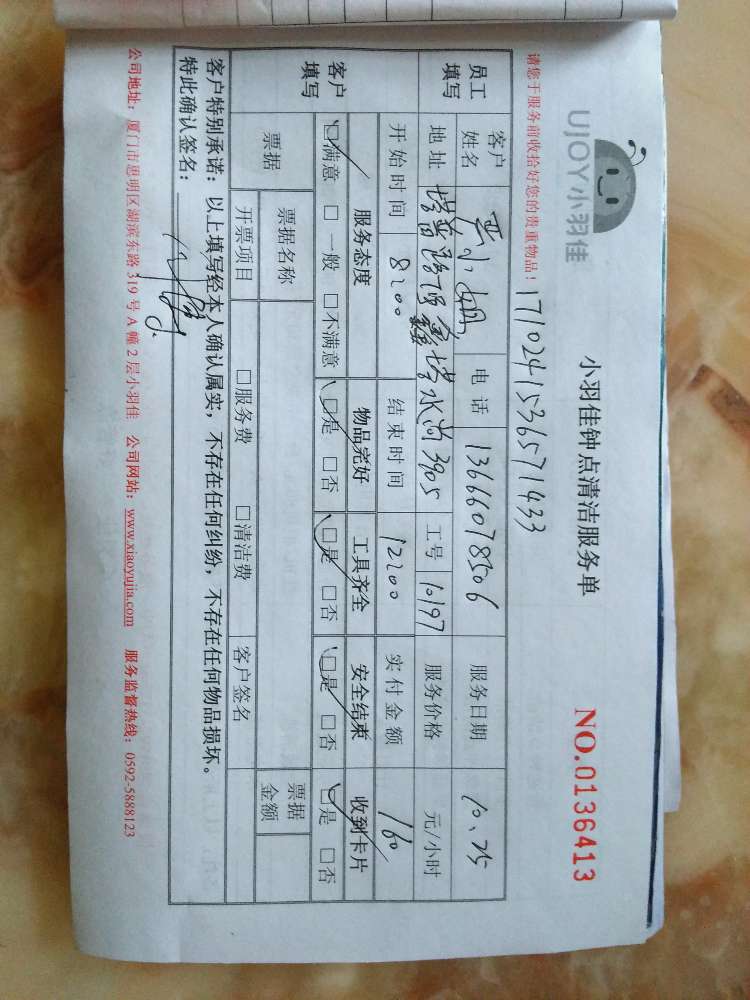 UJOY小羽佳
小羽佳钟点清洁服务单
NO.0136413
请您于服务前收拾好您的贵重物品！
1710241536571433
员工填写 客户姓名 严小姐 电话 13660078506 服务日期 10.25
地址 塔水尚3905 工号 10197 服务价格 元/小时
开始时间 8:00 结束时间 12:00 实付金额 160
客户填写 服务态度 物品完好 工具齐全 安全结束 收到卡片
☑满意 □一般 □不满意 ☑是 □否 ☑是 □否 ☑是 □否 ☑是 □否
票据 票据名称 票据金额
开票项目 □服务费 □清洁费 客户签名
客户特别承诺：以上填写经本人确认属实，不存在任何纠纷，不存在任何物品损坏。
特此确认签名：
公司地址：厦门市思明区湖滨东路319号A幢2层小羽佳 公司网站：www.xiaoyujia.com 服务监督热线：0592-5888123